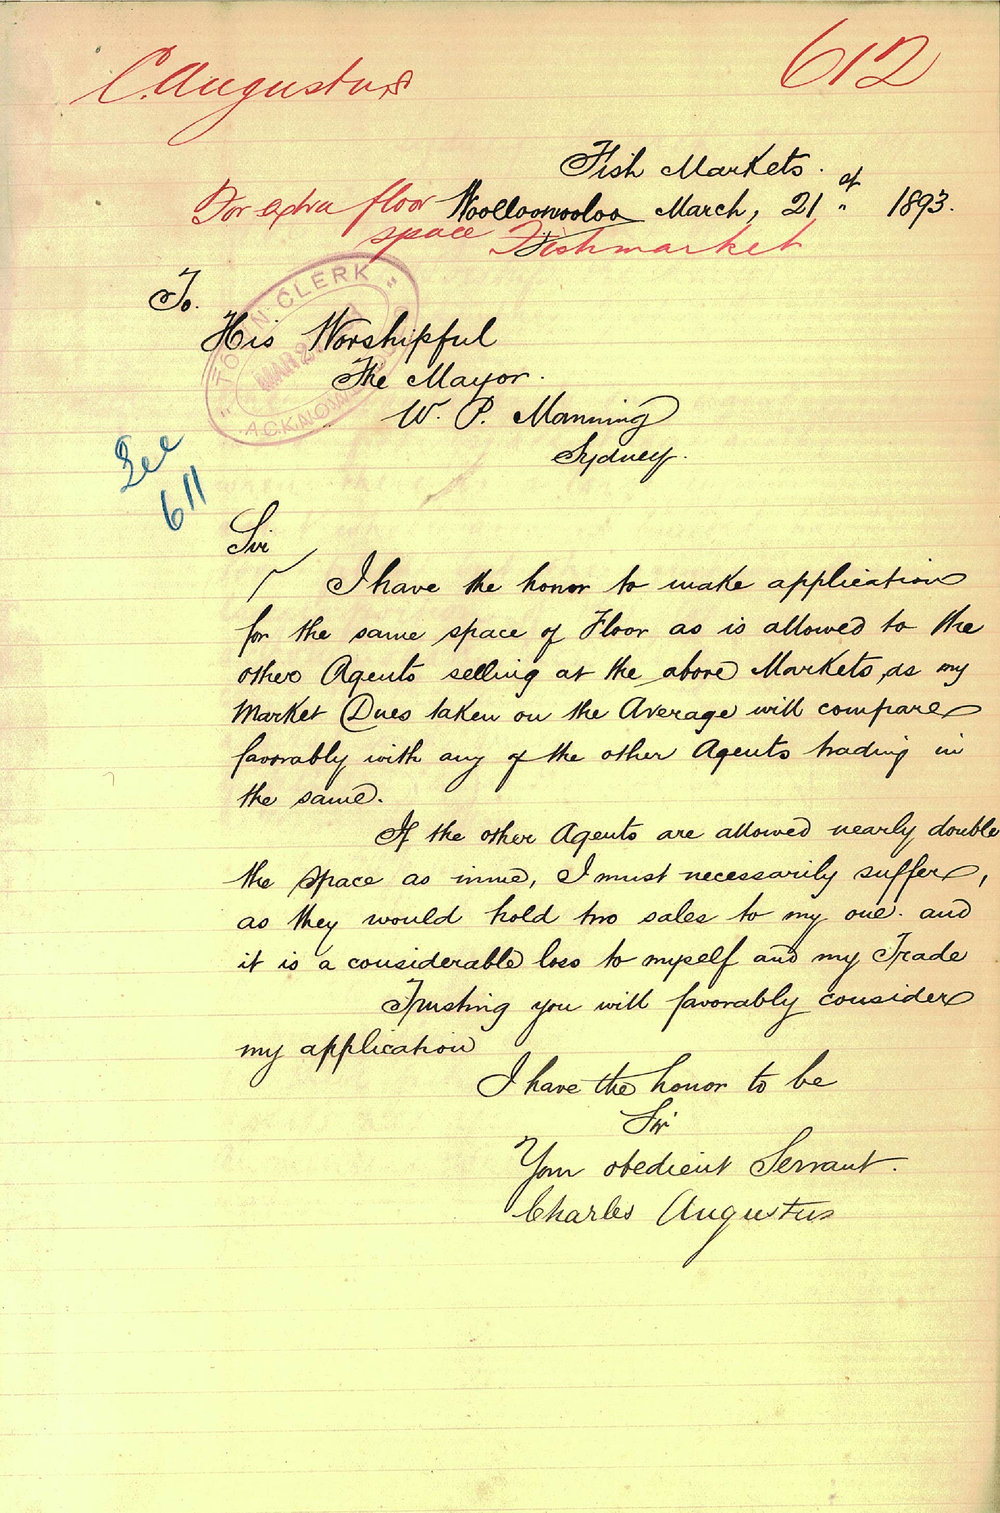 C. Augustus
612
Fish Markets.
Woolloomooloo March, 21st 1893.
For extra floor
space Fishmarket
TOWN CLERK
MAR 2
ACKNOW
To.
His Worshipful
The Mayor.
W. P. Manning
Sydney.
See
611
Sir
I have the honor to make application
for the same space of Floor as is allowed to the
other Agents selling at the above Markets, as my
Market Dues taken on the Average will compare
favorably with any of the other Agents trading in
the same.
If the other Agents are allowed nearly double
the space as mine, I must necessarily suffer,
as they would hold two sales to my one. and
it is a considerable loss to myself and my Trade
Trusting you will favorably consider
my application
I have the honor to be
Sir
Your obedient Servant.
Charles Augustus